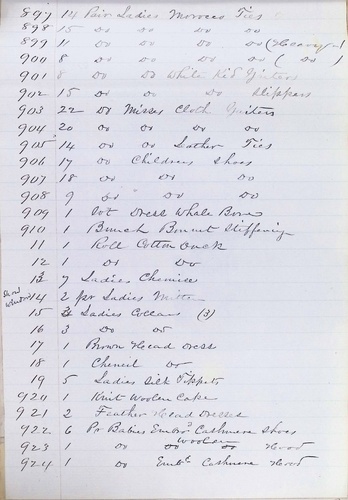 897 14 Pair Ladies Morocco Ties
898 15 do do do do
899 11 do do do do (Heavy)
900 8 do do do do ( do )
901 8 do do White Kid Gaiters
902 15 do do do Slippers
903 22 do Misses Cloth Gaiters
904 20 do do do do
905 14 do do Leather Ties
906 17 do Childrens Shoes
907 18 do do do
908 9 " do do
909 1 Lot Dress Whale Bone
910 1 Bunch Bonnet Stiffening
11 1 Roll Cotton Duck
12 1 do do do
13 7 Ladies Chemise
Show Window 14 2 pr Ladies Mitts
15 3 Ladies Collars (3)
16 3 do do
17 1 Brown Head Dress
18 1 Cheneil do
19 5 Ladies Silk Tippets
920 1 Knit Woolen Cape
921 2 Feather Head Dresses
922 6 Pr Babies Embrd Cashmere Shoes
923 1 do do Woolen do Hood
924 1 do Embd Cashmere Hood